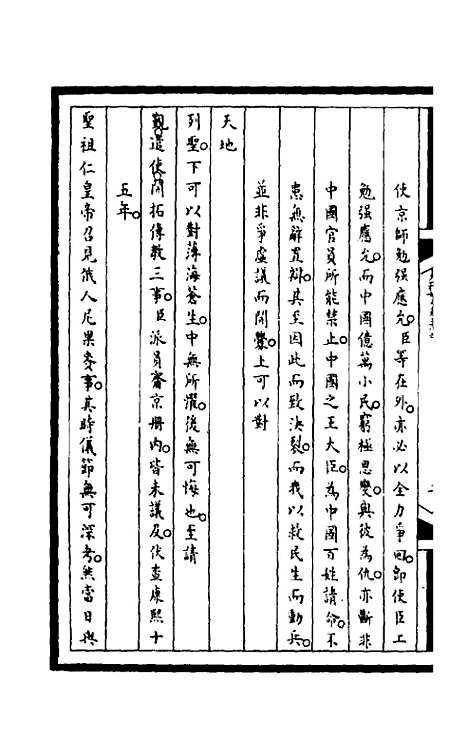 使京師勉强應允。臣等在外。亦必以全力爭回。即使臣工
勉强應允。而中國億萬小民。窮極思變。與彼為仇。亦斷非
中國官員所能禁止。中國之王大臣。為中國百姓請命。不
患無辭置辯。甚至因此而致決裂。而我以救民生而動兵。
並非爭虛議而開釁。上可以對
天地
列聖。下可以對薄海蒼生。中無所懼。後無可悔也。至請
覲遣使。開拓傳教三事。臣派員齎京冊內。皆未議及。伏查康熙十
五年。
聖祖仁皇帝召見俄人尼果賚事。其時儀節無可深考。然當日與